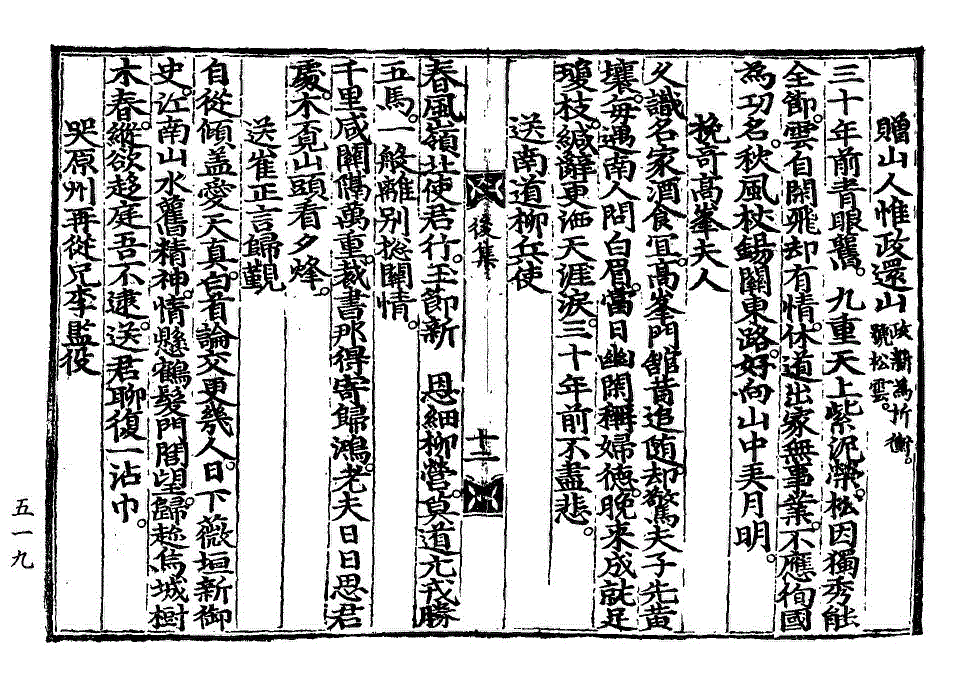 贈山人惟政還山 政新爲折衝。號松雲。
三十年前青眼舊。九重天上紫泥濃。松因獨秀能
全節。雲自閑飛却有情。休道出家無事業。不應徇國
爲功名。秋風杖錫關東路。好向山中弄月明。
挽哥高峯夫人
久識名家酒食宜。高峯門舘昔追随。却驚夫子先黄
壤。每遇南人問白眉。當日幽閑稱婦德。晚來成就足
瓊枝。緘辭更洒天涯淚。三十年前不盡悲。
送南道柳兵使
後集
十二
春風嶺北使君行。玉節新恩細柳營。莫道元戎勝
五馬。一般離別揔關情。
千里咸關隔萬重。裁書那得寄歸鴻。老夫日日思君
處。木覓山頭看夕烽。
送崔正言歸覲
自從傾盖愛天真。白首論交更幾人。日下薇垣新御
史。江南山水舊精神。情懸鶴髮門閭望。歸趁烏城樹
木春。縱欲趍庭吾不逮。送君聊復一沾巾。
哭原州再從兄李監役
五一九